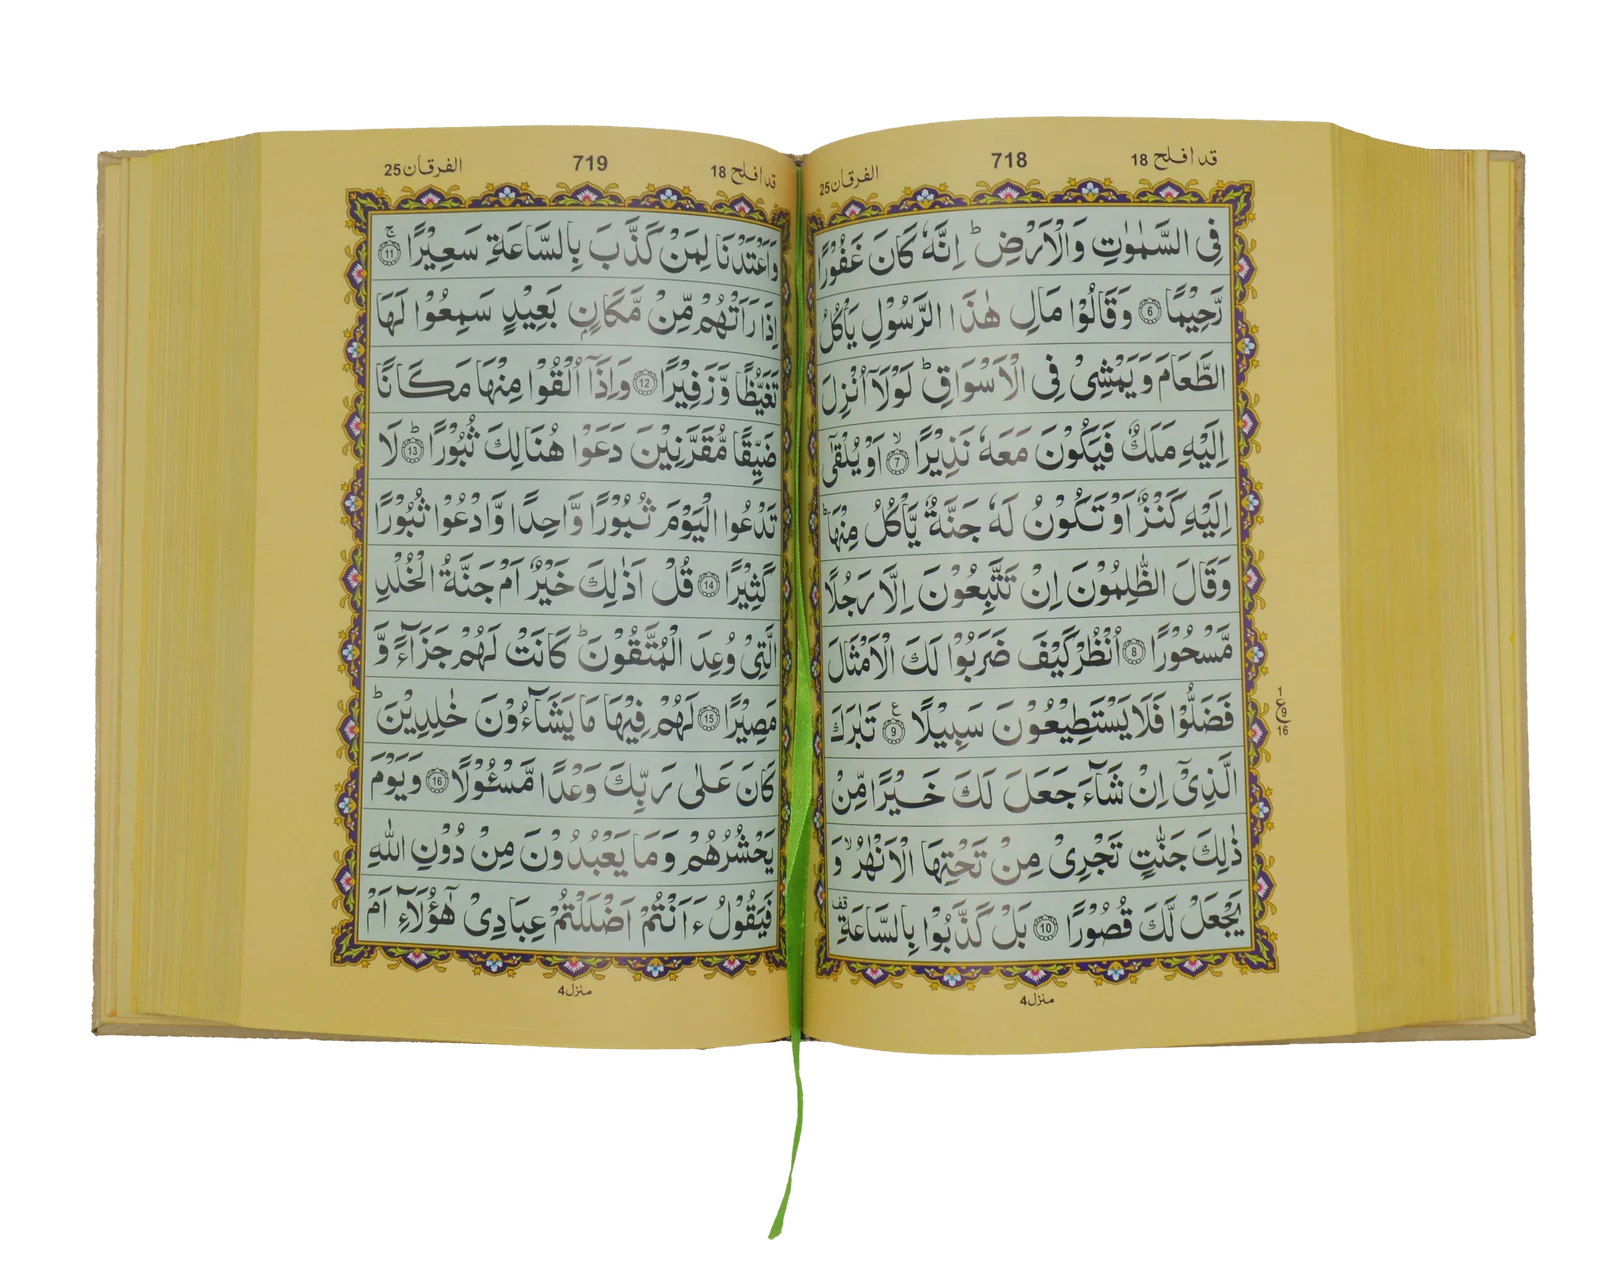 قد افلح 18
718
الفرقان 25
فِی السَّمٰوٰتِ وَالْاَرْضِ ؕ اِنَّهٗ كَانَ غَفُوْرًا
رَّحِیْمًا ۝6 وَقَالُوْا مَالِ هٰذَا الرَّسُوْلِ یَاْكُلُ
الطَّعَامَ وَیَمْشِیْ فِی الْاَسْوَاقِ ؕ لَوْلَاۤ اُنْزِلَ
اِلَیْهِ مَلَكٌ فَیَكُوْنَ مَعَهٗ نَذِیْرًا ۙ۝7 اَوْ یُلْقٰۤی
اِلَیْهِ كَنْزٌ اَوْ تَكُوْنُ لَهٗ جَنَّةٌ یَّاْكُلُ مِنْهَا ؕ
وَقَالَ الظّٰلِمُوْنَ اِنْ تَتَّبِعُوْنَ اِلَّا رَجُلًا
مَّسْحُوْرًا ۝8 اُنْظُرْ كَیْفَ ضَرَبُوْا لَكَ الْاَمْثَالَ
فَضَلُّوْا فَلَا یَسْتَطِیْعُوْنَ سَبِیْلًا ۝9 ع تَبٰرَكَ
1
ع 9
16
الَّذِیْۤ اِنْ شَآءَ جَعَلَ لَكَ خَیْرًا مِّنْ
ذٰلِكَ جَنّٰتٍ تَجْرِیْ مِنْ تَحْتِهَا الْاَنْهٰرُ ۙ وَ
یَجْعَلْ لَّكَ قُصُوْرًا ۝10 بَلْ كَذَّبُوْا بِالسَّاعَةِ قف
منزل 4
قد افلح 18
719
الفرقان 25
وَاَعْتَدْنَا لِمَنْ كَذَّبَ بِالسَّاعَةِ سَعِیْرًا ۚ۝11
اِذَا رَاَتْهُمْ مِّنْ مَّكَانٍۭ بَعِیْدٍ سَمِعُوْا لَهَا
تَغَیُّظًا وَّزَفِیْرًا ۝12 وَاِذَاۤ اُلْقُوْا مِنْهَا مَكَانًا
ضَیِّقًا مُّقَرَّنِیْنَ دَعَوْا هُنَالِكَ ثُبُوْرًا ؕ۝13 لَا
تَدْعُوا الْیَوْمَ ثُبُوْرًا وَّاحِدًا وَّادْعُوْا ثُبُوْرًا
كَثِیْرًا ۝14 قُلْ اَذٰلِكَ خَیْرٌ اَمْ جَنَّةُ الْخُلْدِ
الَّتِیْ وُعِدَ الْمُتَّقُوْنَ ؕ كَانَتْ لَهُمْ جَزَآءً وَّ
مَصِیْرًا ۝15 لَهُمْ فِیْهَا مَا یَشَآءُوْنَ خٰلِدِیْنَ ؕ
كَانَ عَلٰی رَبِّكَ وَعْدًا مَّسْـُٔوْلًا ۝16 وَیَوْمَ
یَحْشُرُهُمْ وَمَا یَعْبُدُوْنَ مِنْ دُوْنِ اللّٰهِ
فَیَقُوْلُ ءَاَنْتُمْ اَضْلَلْتُمْ عِبَادِیْ هٰۤؤُلَآءِ اَمْ
منزل 4